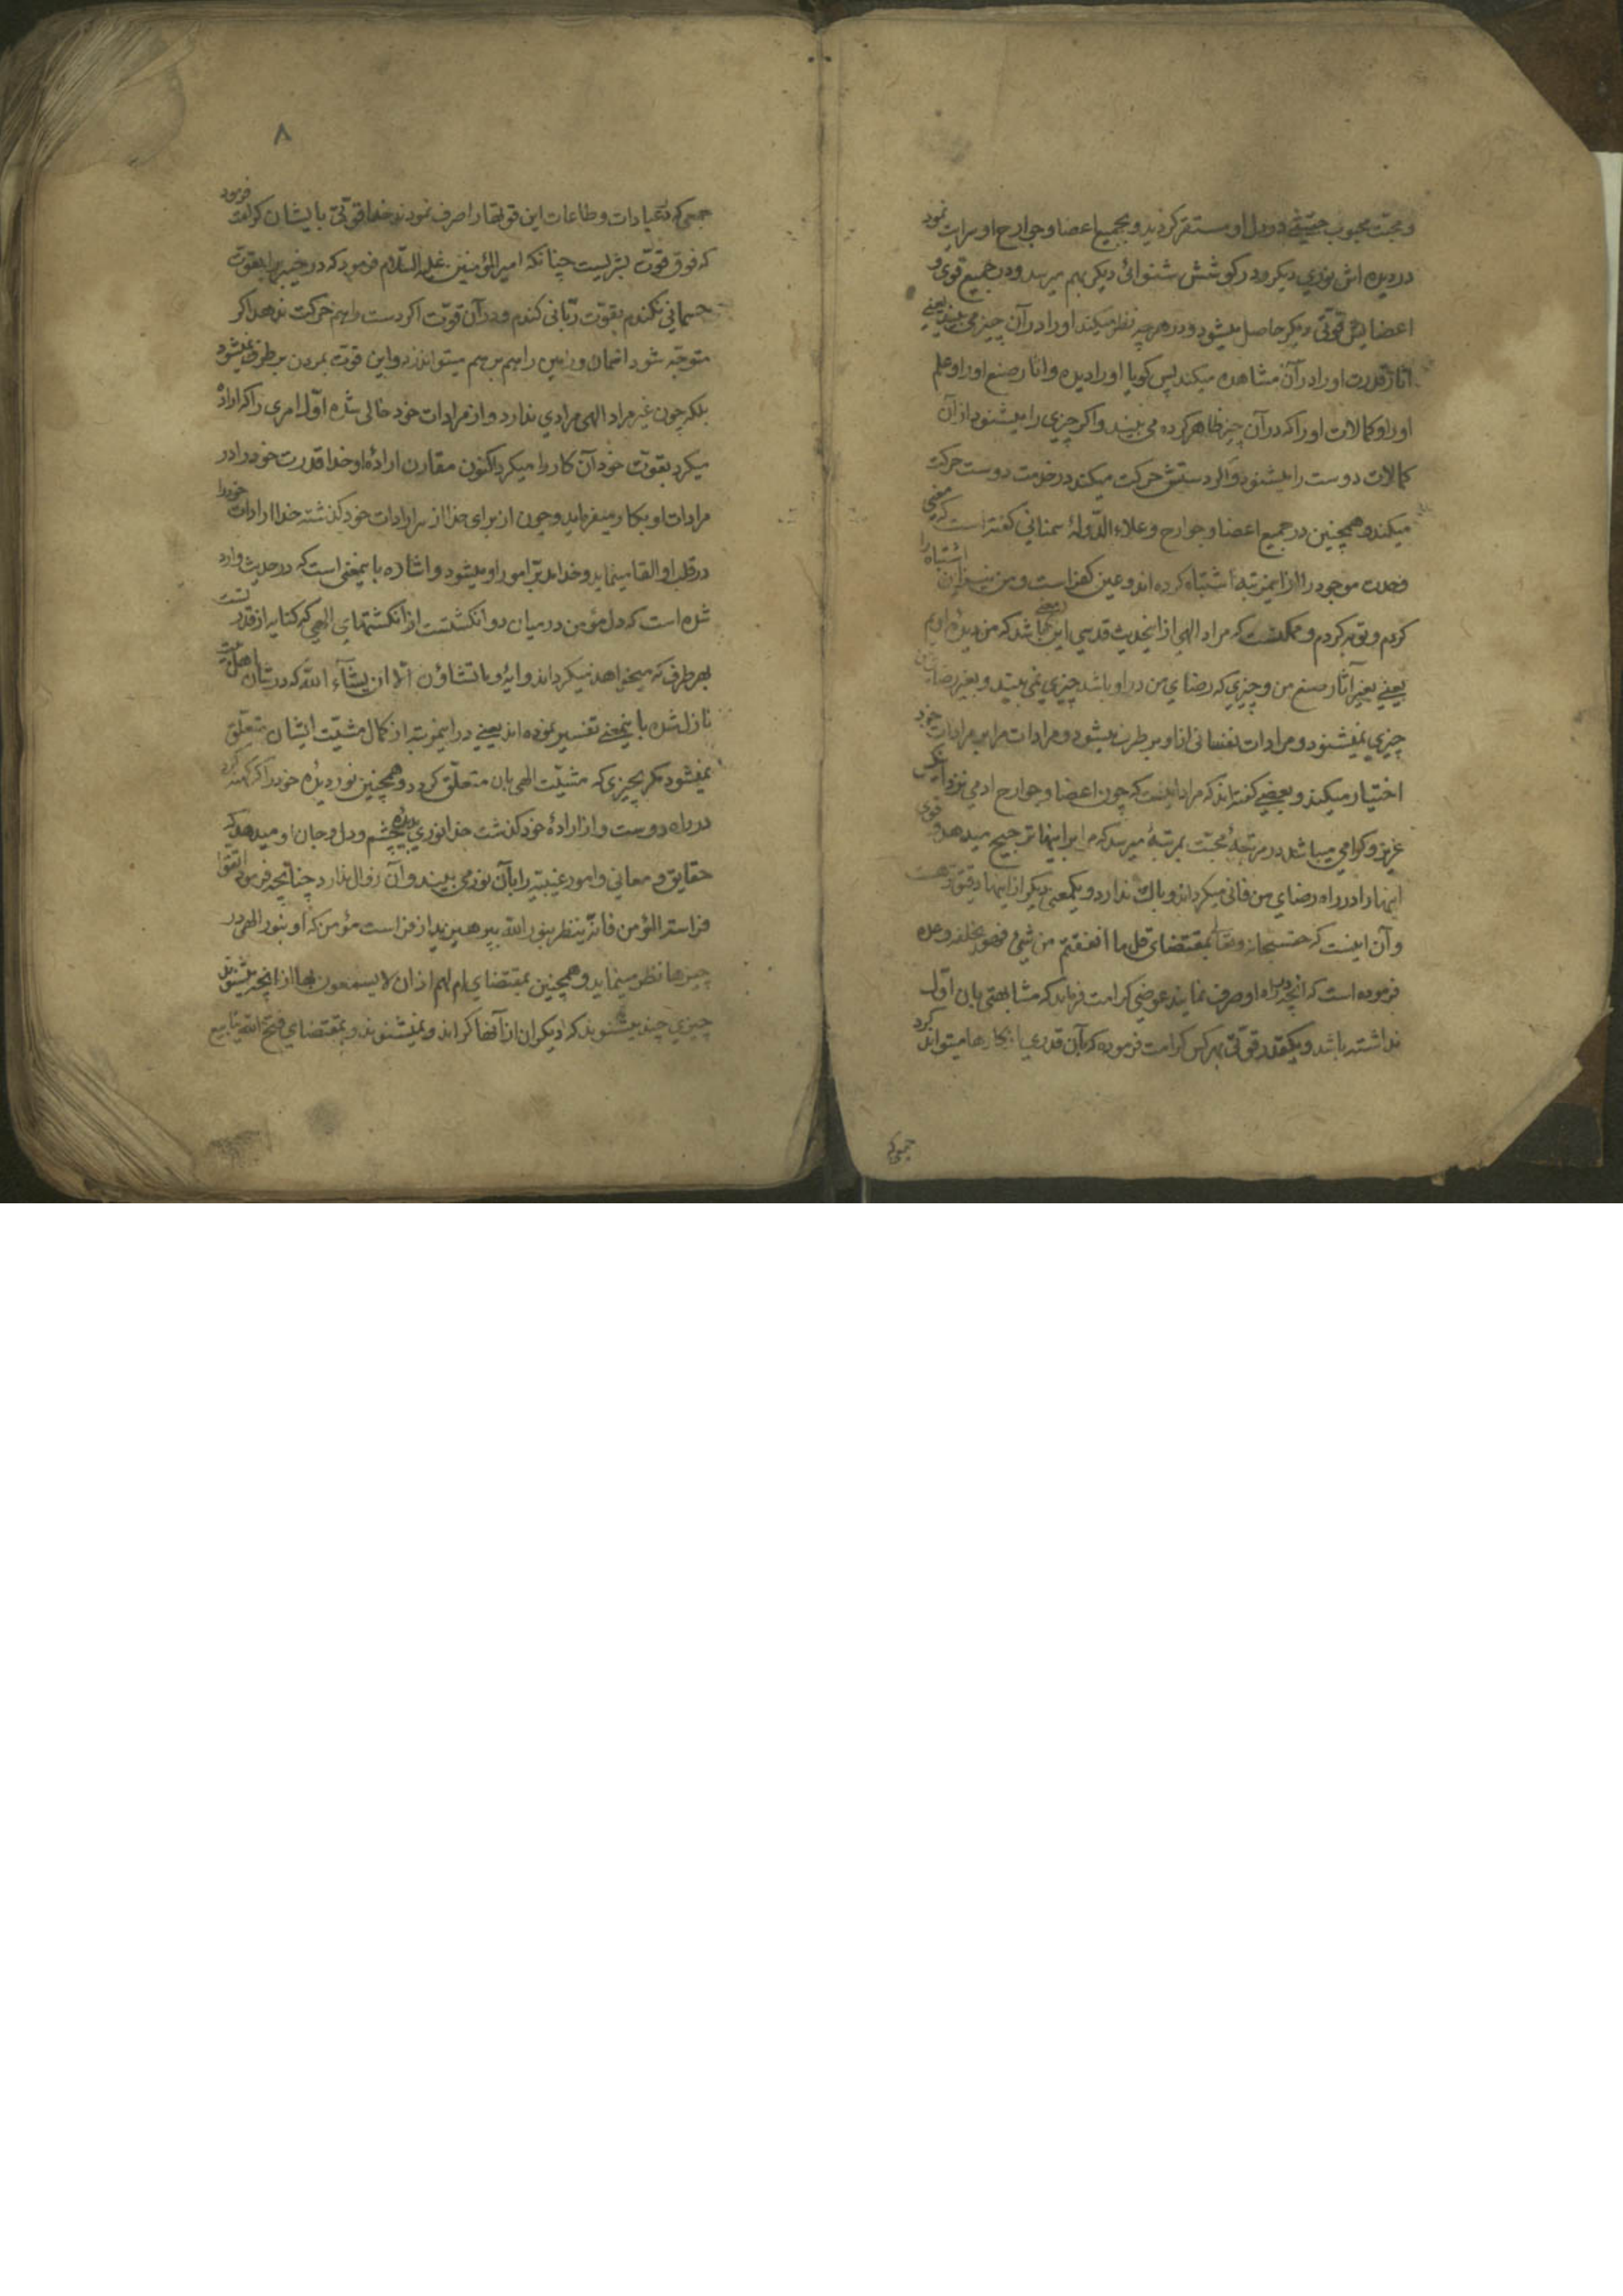 و محبت محبوب حقیقی در دل او مستقر گردید و بجمیع اعضا و جوارح او سرایت نمود
در دیده اش نوری دیگر و در گوشش شنوائی دیگر بهم میرسد و در جمیع قوی و
اعضایش قوتی دیگر حاصل میشود و در هر چه نظر میکند او را در آن چیز می بیند یعنی
آثار قدرت او را در آن مشاهده میکند پس گویا او را دیده و آثار صنع او را و علم
او را و کمالات او را که در آن چیز ظاهر کرده می بیند و اگر چیزی را میشنود از آن
کمالات دوست را میشنود و اگر دستش حرکت میکند در خدمت دوست حرکت
میکند و همچنین در جمیع اعضا و جوارح و علاء الدوله سمنانی گفته است که بعضی
وحدت موجود را از این مرتبه اشتباه کرده اند و عین کفر است و من نیز این اشتباه را
کردم و توبه کردم و ممکنست که مراد الهی از این حدیث قدسی این معنی باشد که من دیده اویم
یعنی بغیر آثار صنع من و چیزی که رضای من در او باشد چیزی نمی بیند و بغیر رضای من
چیزی نمیشنود و مرادات نفسانی از او بر طرف میشود و مرادات مرا بر مرادات خود
اختیار میکند و بعضی گفته اند که مراد اینست که چون اعضا و جوارح آدمی نزد او بس
عزیز و گرامی میباشد در مرتبهٔ محبت بمرتبهٔ میرسد که مرا بر اینها ترجیح میدهد و قوی
اینها را در راه رضای من فانی میگرداند و باک ندارد و یکمعنی دیگر از اینها دقیق تر هست
و آن اینست که حق سبحانه و تعالی بمقتضای قل ما انفقتم من شیء فهو یخلفه وعده
فرموده است که آنچه در راه او صرف نمایند عوضی کرامت فرماید که مشابهتی بآن اول
نداشته باشد و یکقدر قوتی بهر کس کرامت فرموده که بآن قدر عبادتها میتواند کرد
جمعی که
۸
جمعی که در عبادات و طاعات این قوتها را صرف نمودند خدا قوتی بایشان کرامت فرمود
که فوق قوت بشریست چنانکه امیر المؤمنین علیه السلام فرمود که در خیبر را بقوت
جسمانی نکندم بقوت ربانی کندم و در آن قوت اگر دست را بهم حرکت ندهد اگر
متوجه شود آسمان و زمین را بهم بر هم میتواند زد و این قوت بمردن بر طرف نمیشود
بلکه چون غیر مراد الهی مرادی ندارد و از مرادات خود خالی شده اول امری را که اراده
میکرد بقوت خود آن کار را میکرد اکنون مقارن ارادهٔ او خدا قدرت خود را در
مرادات او بکار میفرماید و چون از برای خدا از سر ارادات خود گذشته خدا ارادات خود را
در قلب او القا مینماید و خدا مدبر امور او میشود و اشاره باینمعنی است که در حدیث وارد
شده است که دل مؤمن در میان دو انگشتست از انگشتهای الهی که کنایه از قدرتست
بهر طرف که میخواهد میگرداند و آیه و ما تشاؤن الا ان یشآء الله که در شان اهل بیت
نازل شده باینمعنی تفسیر نموده اند یعنی در اینمرتبه از کمال مشیت ایشان متعلق
نمیشود مگر بچیزی که مشیت الهی بآن متعلق گردد و همچنین نور دیدهٔ خود را که کهنه کرد
در راه دوست و از ارادهٔ خود گذشت خدا نوری بدیدهٔ چشم و دل و جان او میدهد که
حقایق و معانی و امور غیبیه را بآن نور می بیند و آن زوال ندارد چنانچه فرمود اتقوا
فراسة المؤمن فانه ینظر بنور الله بپرهیزید از فراست مؤمن که او بنور الهی در
چیزها نظر مینماید و همچنین بمقتضای ام لهم آذان لا یسمعون بها از آنچه میشنوند
چیزی چند میشنوند که دیگران از آنها کر اند و نمیشنوند و بمقتضای فتح الله ینابیع